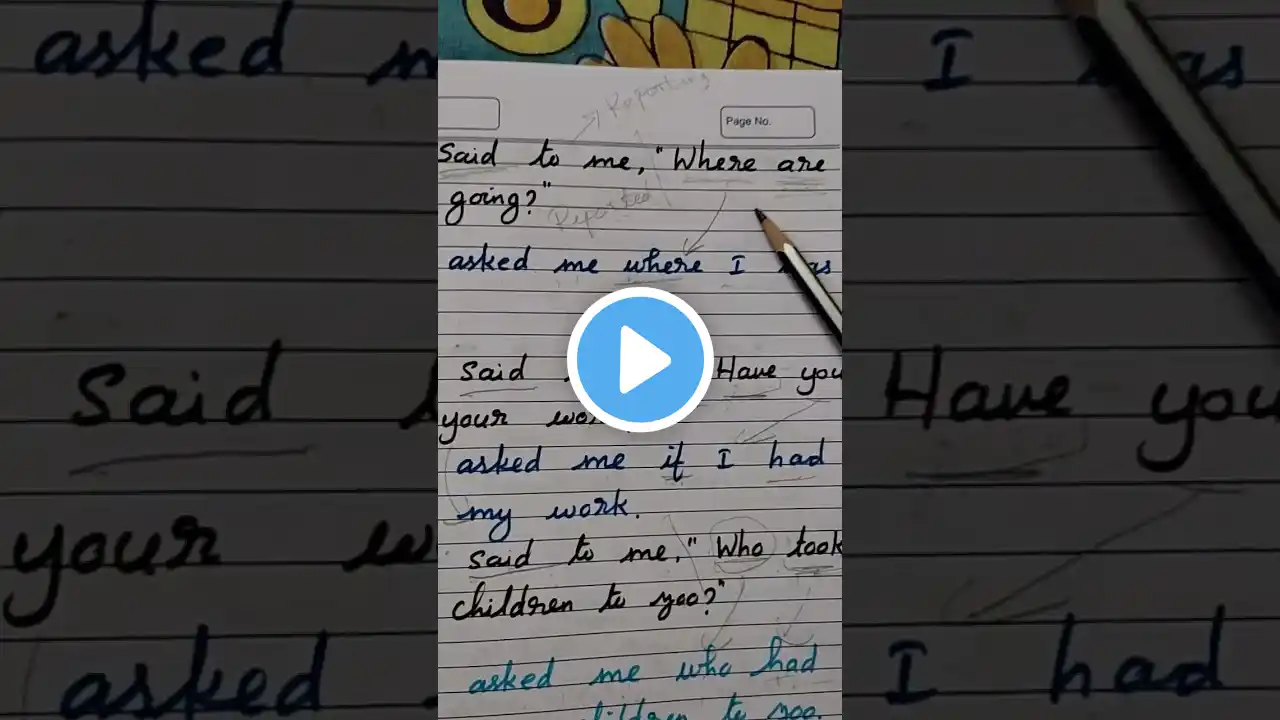 Reporting
Page No.
Said to me, "Where are
going?"
Reported
asked me where I was
Said Have you
your wor
asked me if I had
my work.
Said to me, "Who took
children to zoo?"
asked me who had
children to zoo.